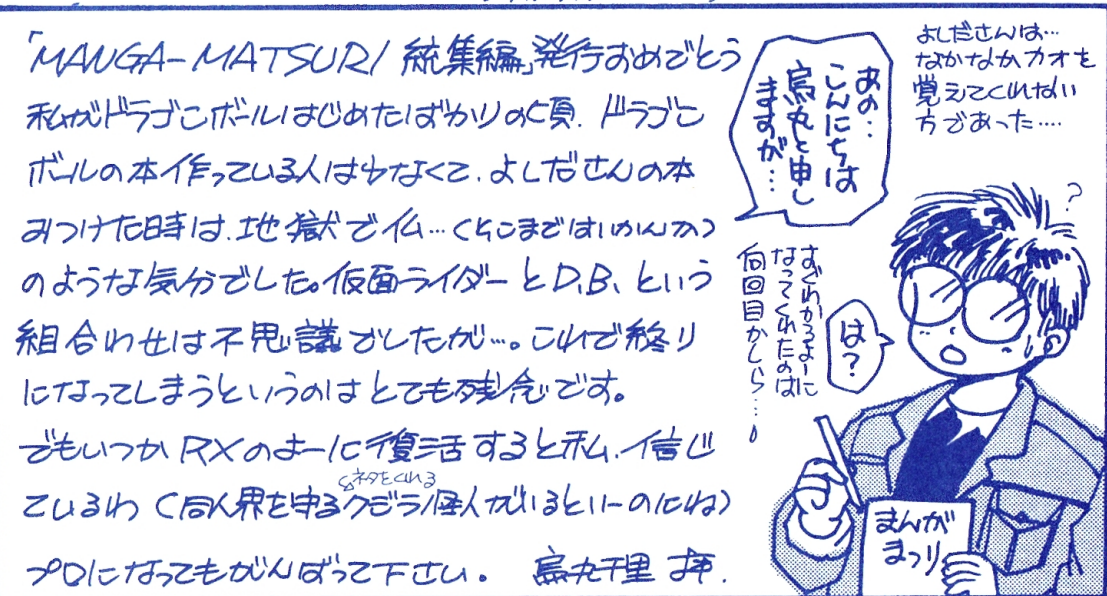 「MANGA-MATSURI 統集編」発行おめでとう
私がドラゴンボールはじめたばかりの頃、ドラゴン
ボールの本作っている人は少なくて、よしださんの本
みつけた時は、地獄で仏…(そこまではいかんか)
のような気分でした。仮面ライダーとD.B、という
組合わせは不思議でしたが…。これで終り
になってしまうというのはとても残念です。
でもいつかRXのよーに復活すると私、信じ
ているわ(同人界を守るクジラ怪人がいるといーのにね)
ネタをくれる
プロになってもがんばって下さい。 烏丸千里 拝.
よしださんは…
なかなかカオを
覚えてくれない
方であった….
あの…
こんにちは
烏丸と申し
ますが…
?
は?
すぐわかるよーに
なってくれたのは
何回目かしら…。
まんが
まつり